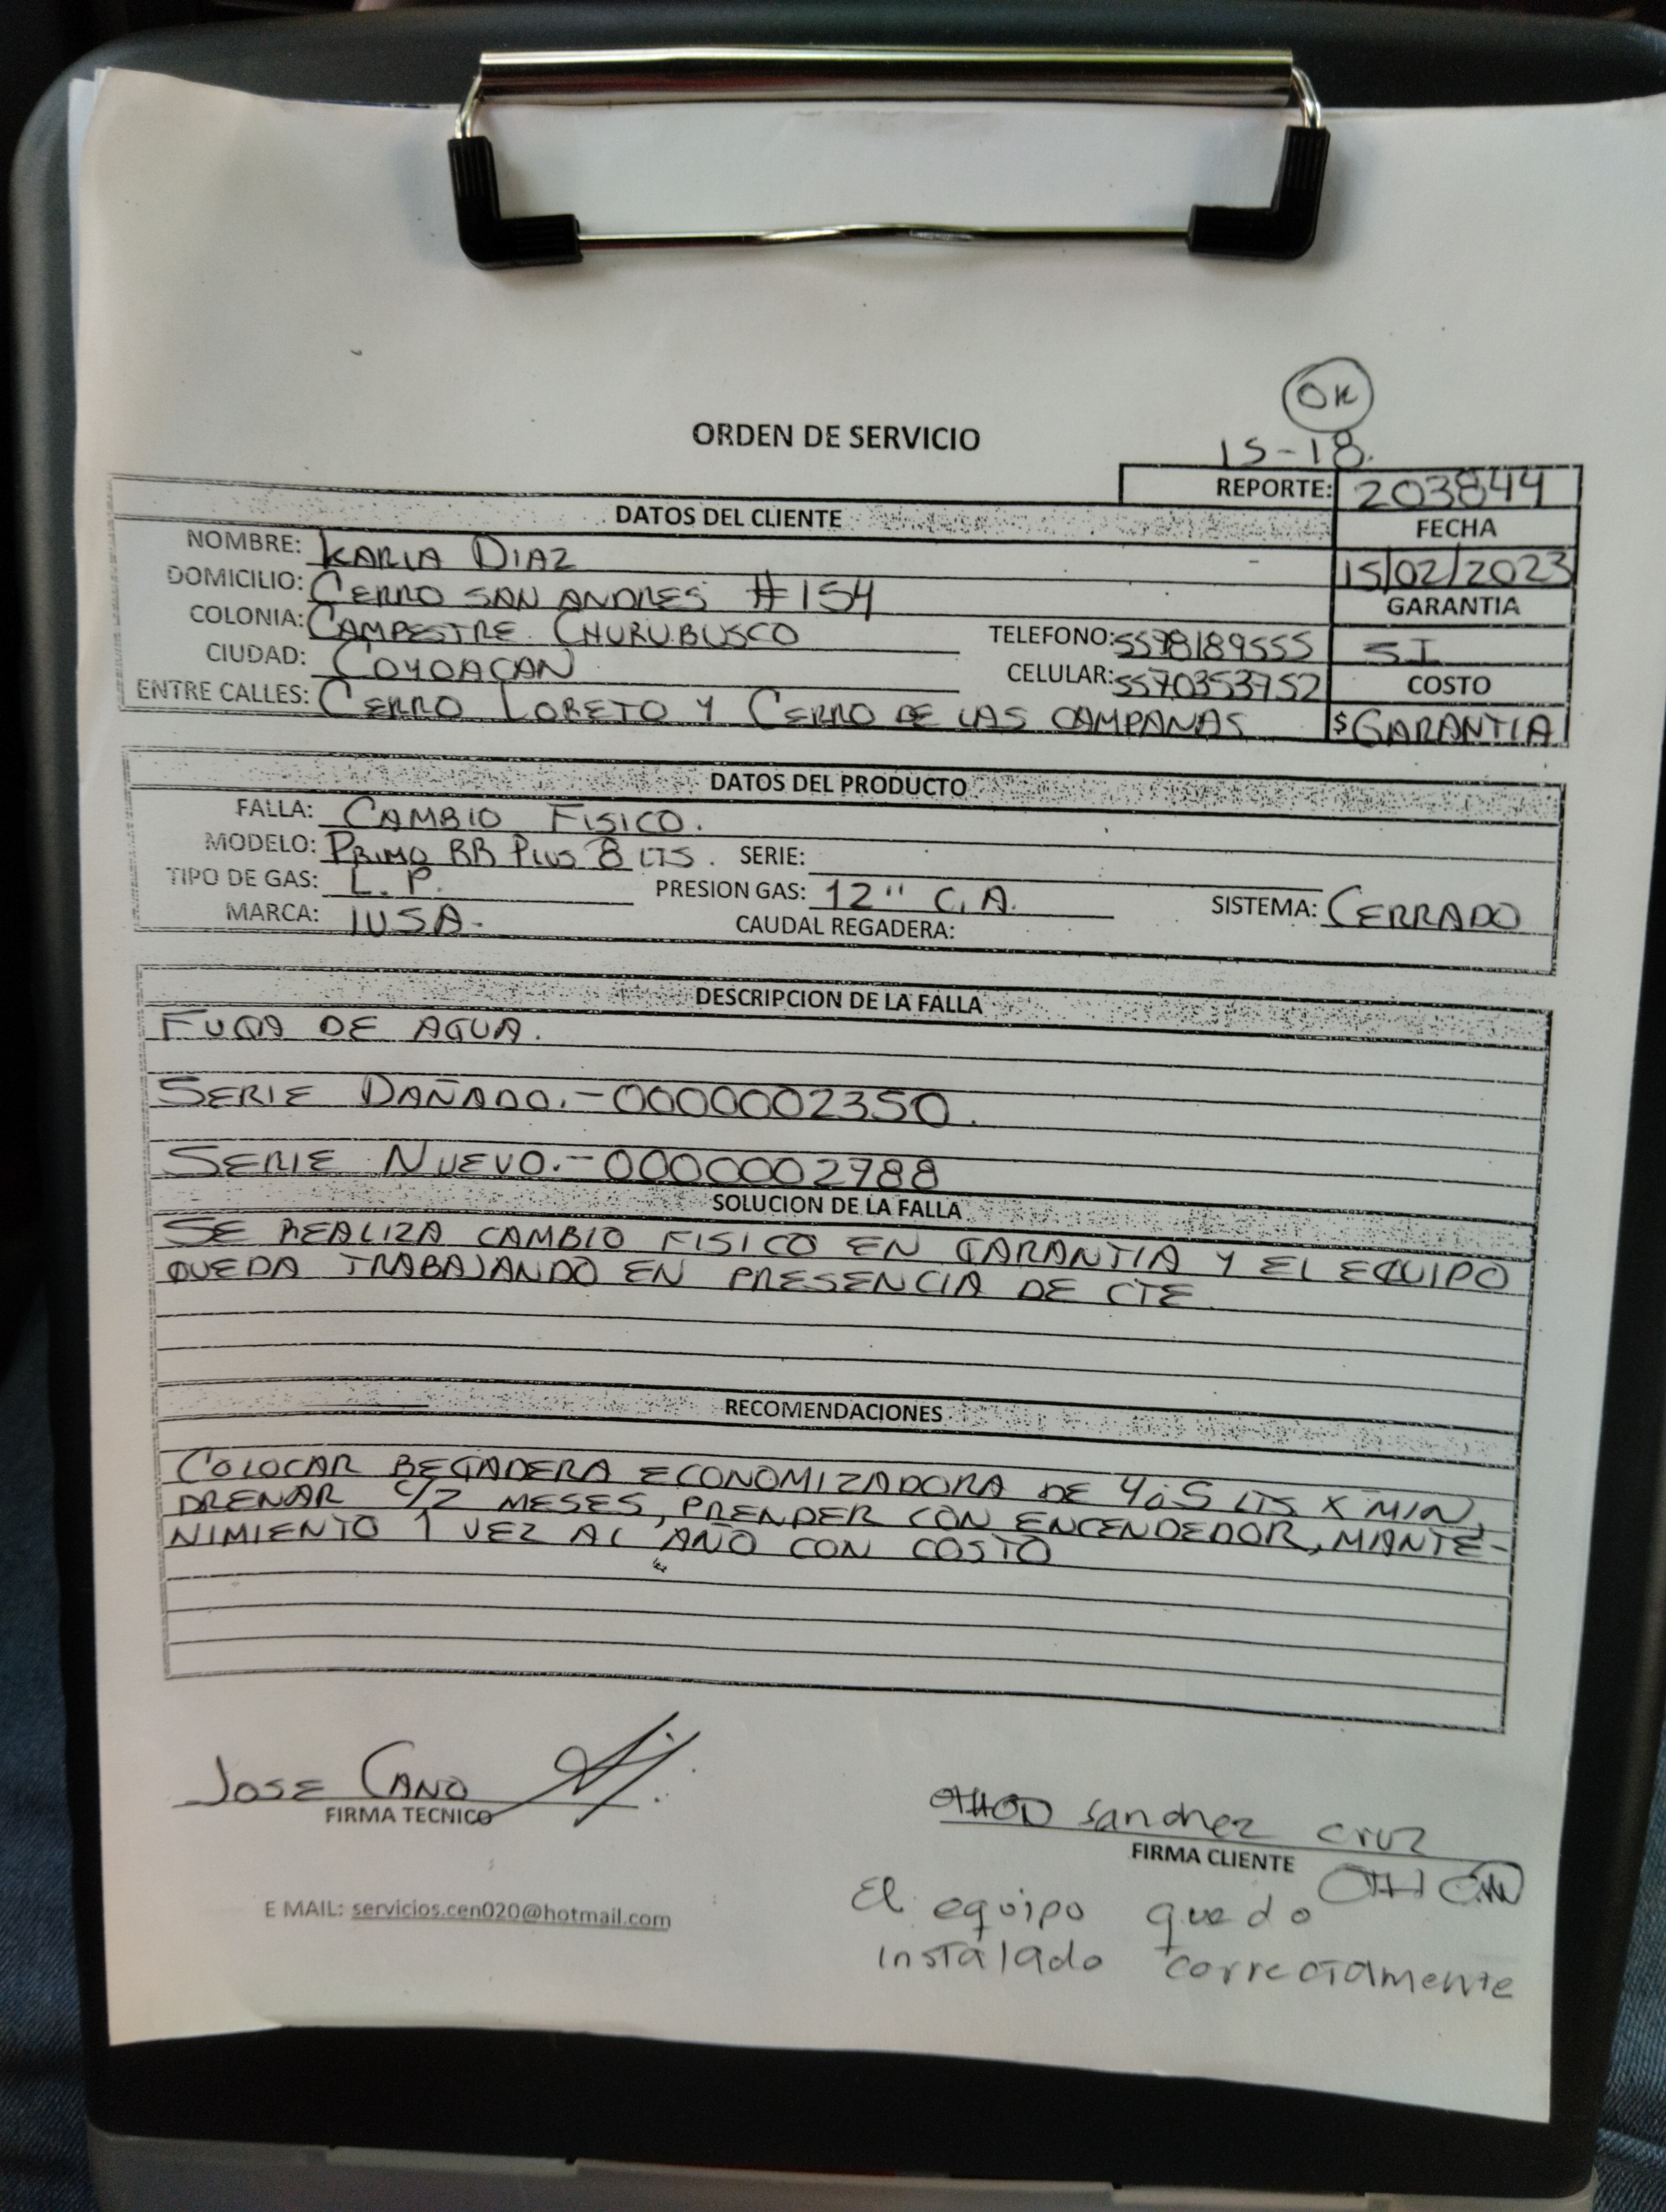 OK
ORDEN DE SERVICIO
15-18.
REPORTE: 203844
DATOS DEL CLIENTE
FECHA
NOMBRE: KARLA DIAZ
15/02/2023
DOMICILIO: CERRO SAN ANDRES #154
GARANTIA
COLONIA: CAMPESTRE CHURUBUSCO
TELEFONO: 5598189555
SI
CIUDAD: COYOACAN
CELULAR: 5570353752
COSTO
ENTRE CALLES: CERRO LORETO Y CERRO DE LAS CAMPANAS
$ GARANTIA
DATOS DEL PRODUCTO
FALLA: CAMBIO FISICO.
MODELO: PRIMO BB PLUS 8 LTS. SERIE:
TIPO DE GAS: L.P. PRESION GAS: 12" C.A. SISTEMA: CERRADO
MARCA: IUSA- CAUDAL REGADERA:
DESCRIPCION DE LA FALLA
FUGA DE AGUA.
SERIE DAÑADO.-0000002350.
SERIE NUEVO.-0000002788
SOLUCION DE LA FALLA
SE REALIZA CAMBIO FISICO EN GARANTIA Y EL EQUIPO
QUEDA TRABAJANDO EN PRESENCIA DE CTE
RECOMENDACIONES
COLOCAR REGADERA ECONOMIZADORA DE 4 ó 5 LTS X MIN,
DRENAR C/2 MESES, PRENDER CON ENCENDEDOR, MANTE-
NIMIENTO 1 VEZ AL AÑO CON COSTO
JOSE CANO
FIRMA TECNICO
Sanchez Cruz
FIRMA CLIENTE
El equipo quedo
instalado correctamente
E MAIL: servicios.cen020@hotmail.com